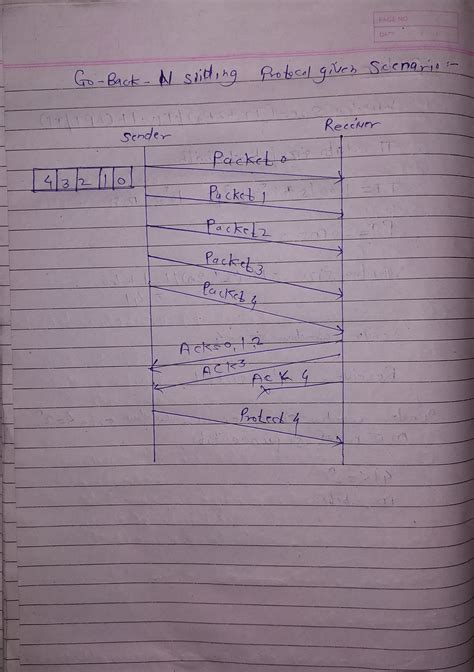 PAGE NO
DATE
Go-Back-N sliding Protocol given Scienario:-
Sender
Receiver
Packet 0
4 3 2 1 0
Packet 1
Packet 2
Packet 3
Packet 4
Ack=0,1 2
ACK3
Ack 4
Protect 4